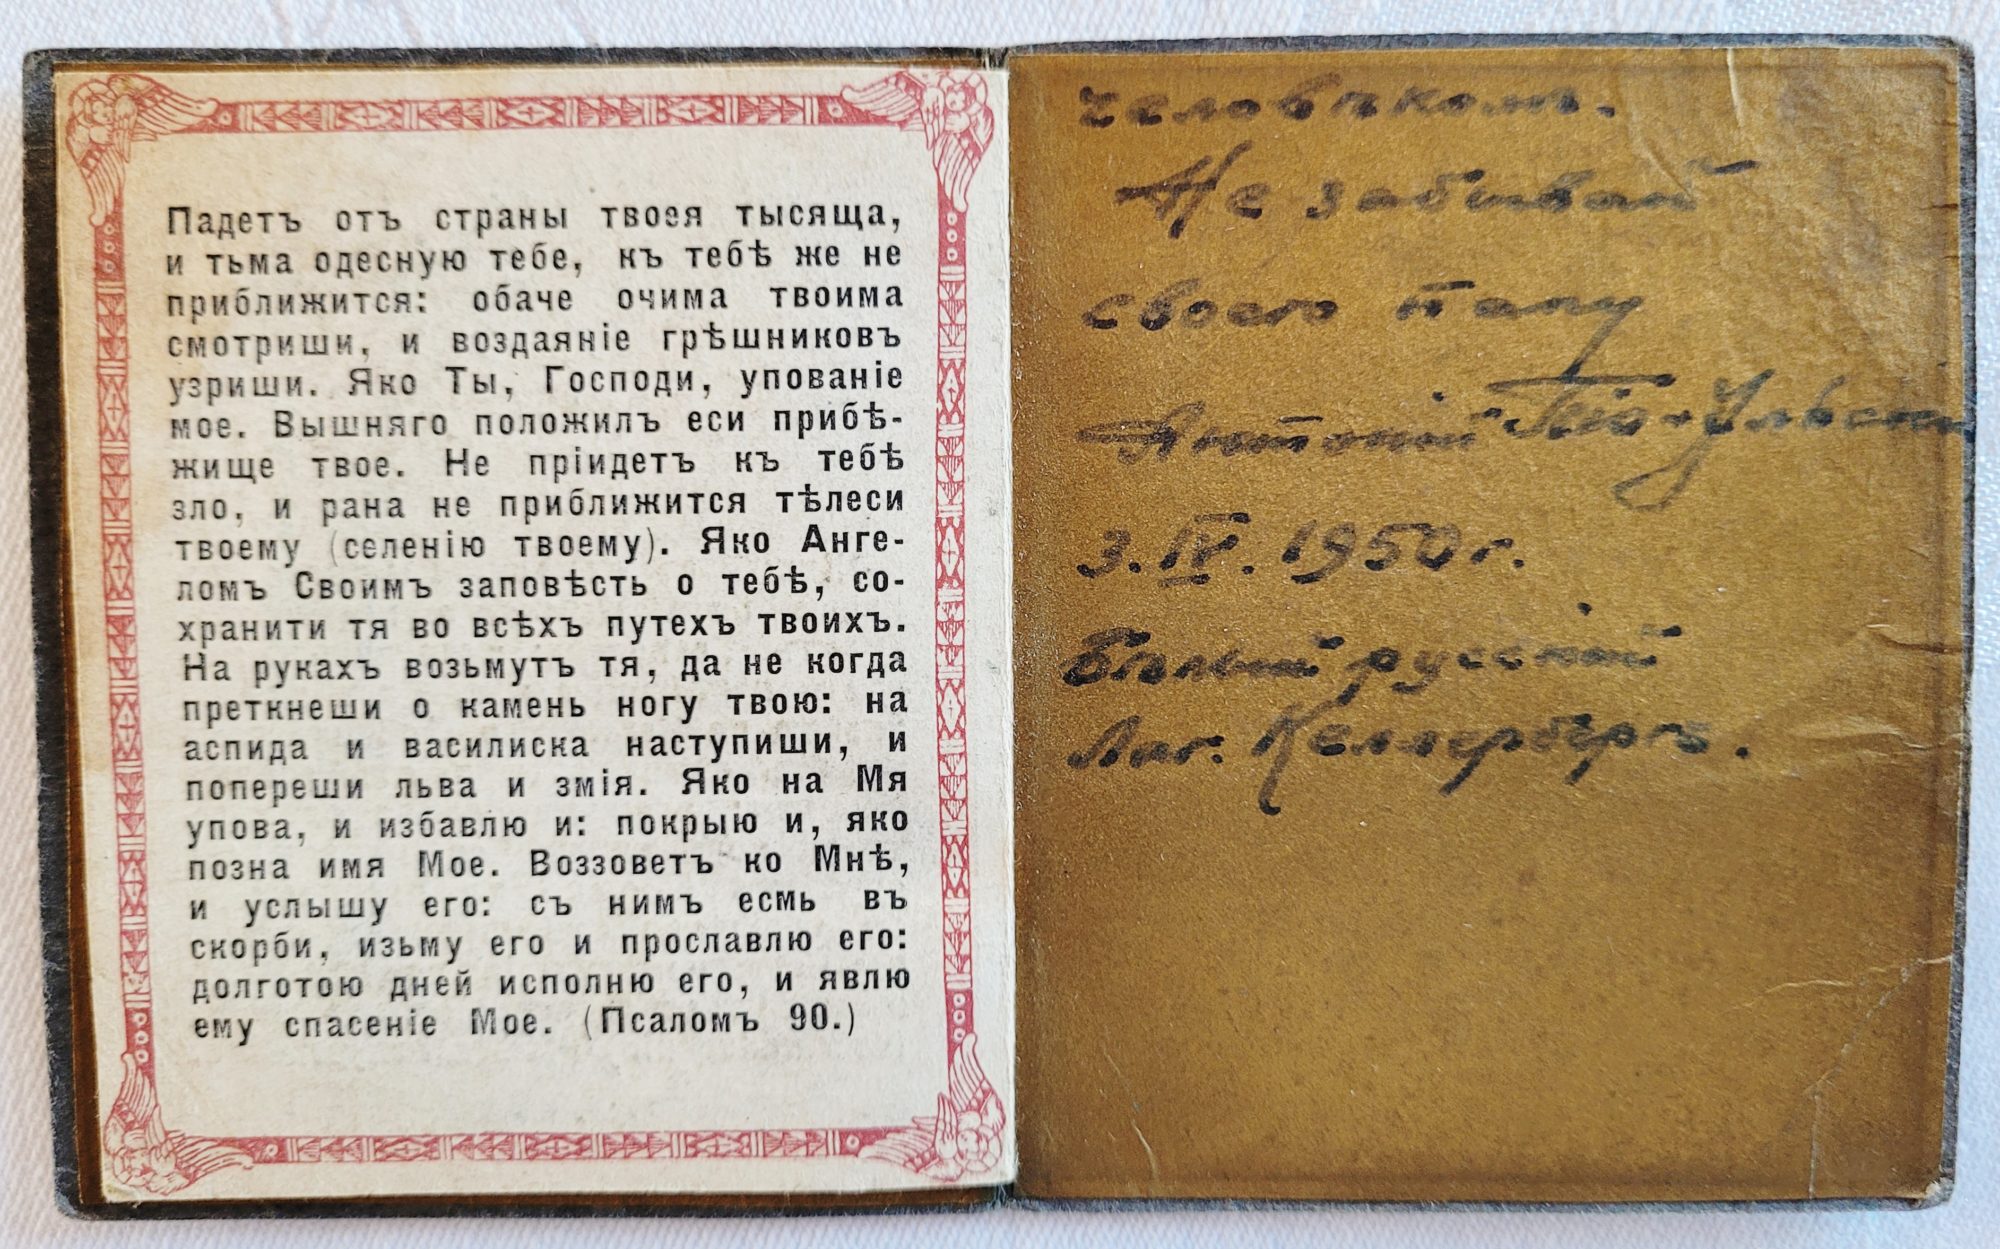 Падетъ отъ страны твоея тысяща,
и тьма одесную тебе, къ тебѣ же не
приближится: обаче очима твоима
смотриши, и воздаяніе грѣшниковъ
узриши. Яко Ты, Господи, упованіе
мое. Вышняго положилъ еси прибѣ-
жище твое. Не пріидетъ къ тебѣ
зло, и рана не приближится тѣлеси
твоему (селенію твоему). Яко Анге-
ломъ Своимъ заповѣсть о тебѣ, со-
хранити тя во всѣхъ путехъ твоихъ.
На рукахъ возьмутъ тя, да не когда
преткнеши о камень ногу твою: на
аспида и василиска наступиши, и
попереши льва и змія. Яко на Мя
упова, и избавлю и: покрыю и, яко
позна имя Мое. Воззоветъ ко Мнѣ,
и услышу его: съ нимъ есмь въ
скорби, изьму его и прославлю его:
долготою дней исполню его, и явлю
ему спасеніе Мое. (Псаломъ 90.)
человѣкомъ.
Не забывай
своего папу
Антоній
3.IV.1950г.
Бѣлый русскій
Лаг. Келлербергъ.